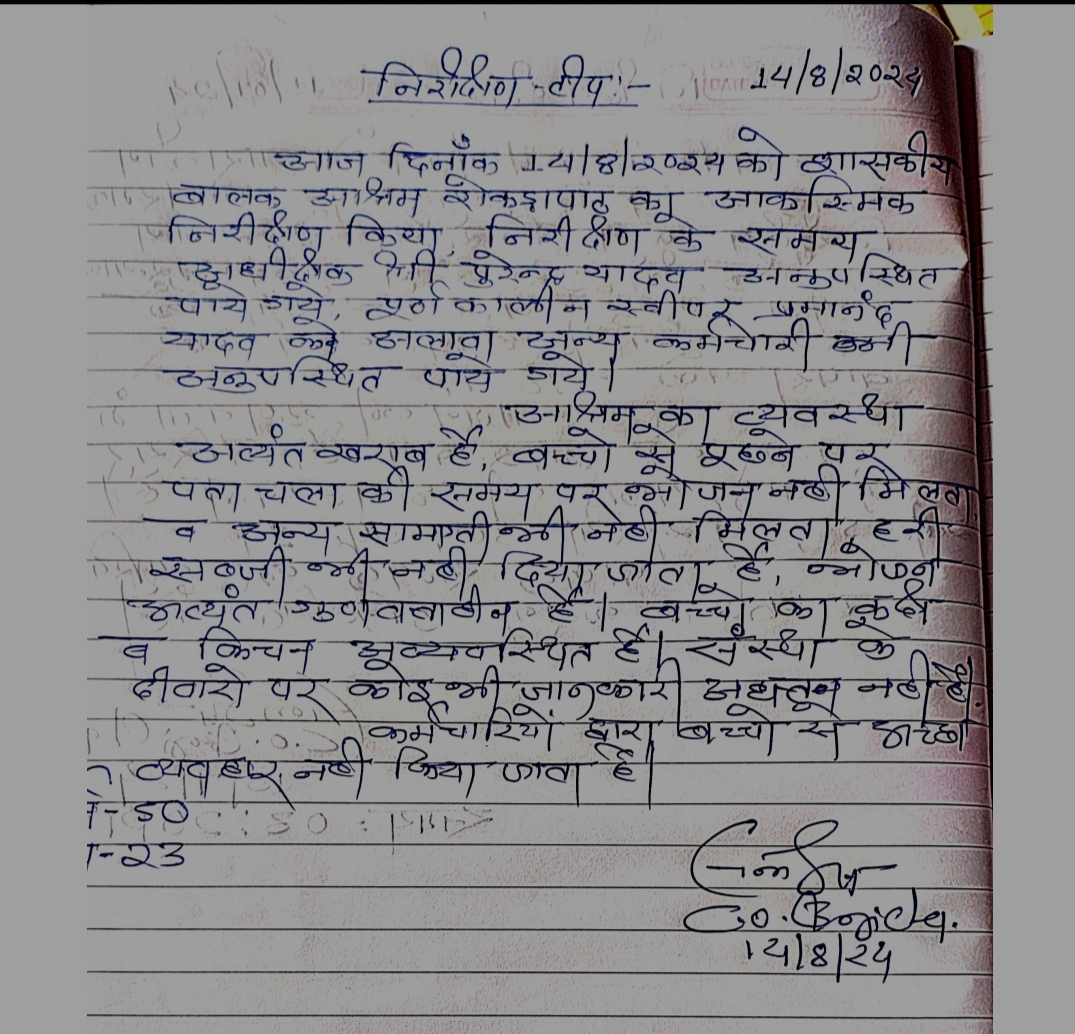 निरीक्षण -टीप :- 14/8/2024
आज दिनाँक 14/8/2024 को शासकीय
बालक आश्रम शोकड़ापाठ का आकस्मिक
निरीक्षण किया, निरीक्षण के समय
अधीक्षक श्री पुरेन्द्र यादव अनुपस्थित
पाये गये, पूर्ण कालीन स्वीपर प्रमानंद
यादव के अलावा अन्य कर्मचारी भी
अनुपस्थित पाये गये।
आश्रम का व्यवस्था
अत्यंत खराब है, बच्चो से पूछने पर
पता चला की समय पर भोजन नही मिलता
व अन्य सामाग्री भी नही मिलता, हरी
सब्जी भी नही दिया जाता है, भोजन
अत्यंत गुणवत्ताहीन है। बच्चो का कक्ष
व किचन अव्यवस्थित है। संस्था के
दीवारो पर कोई भी जानकारी अद्यतन नही है.
कर्मचारियों द्वारा बच्चो से अच्छा
व्यवहार नही किया जाता है।
- 50
- 23
C.O.
14/8/24